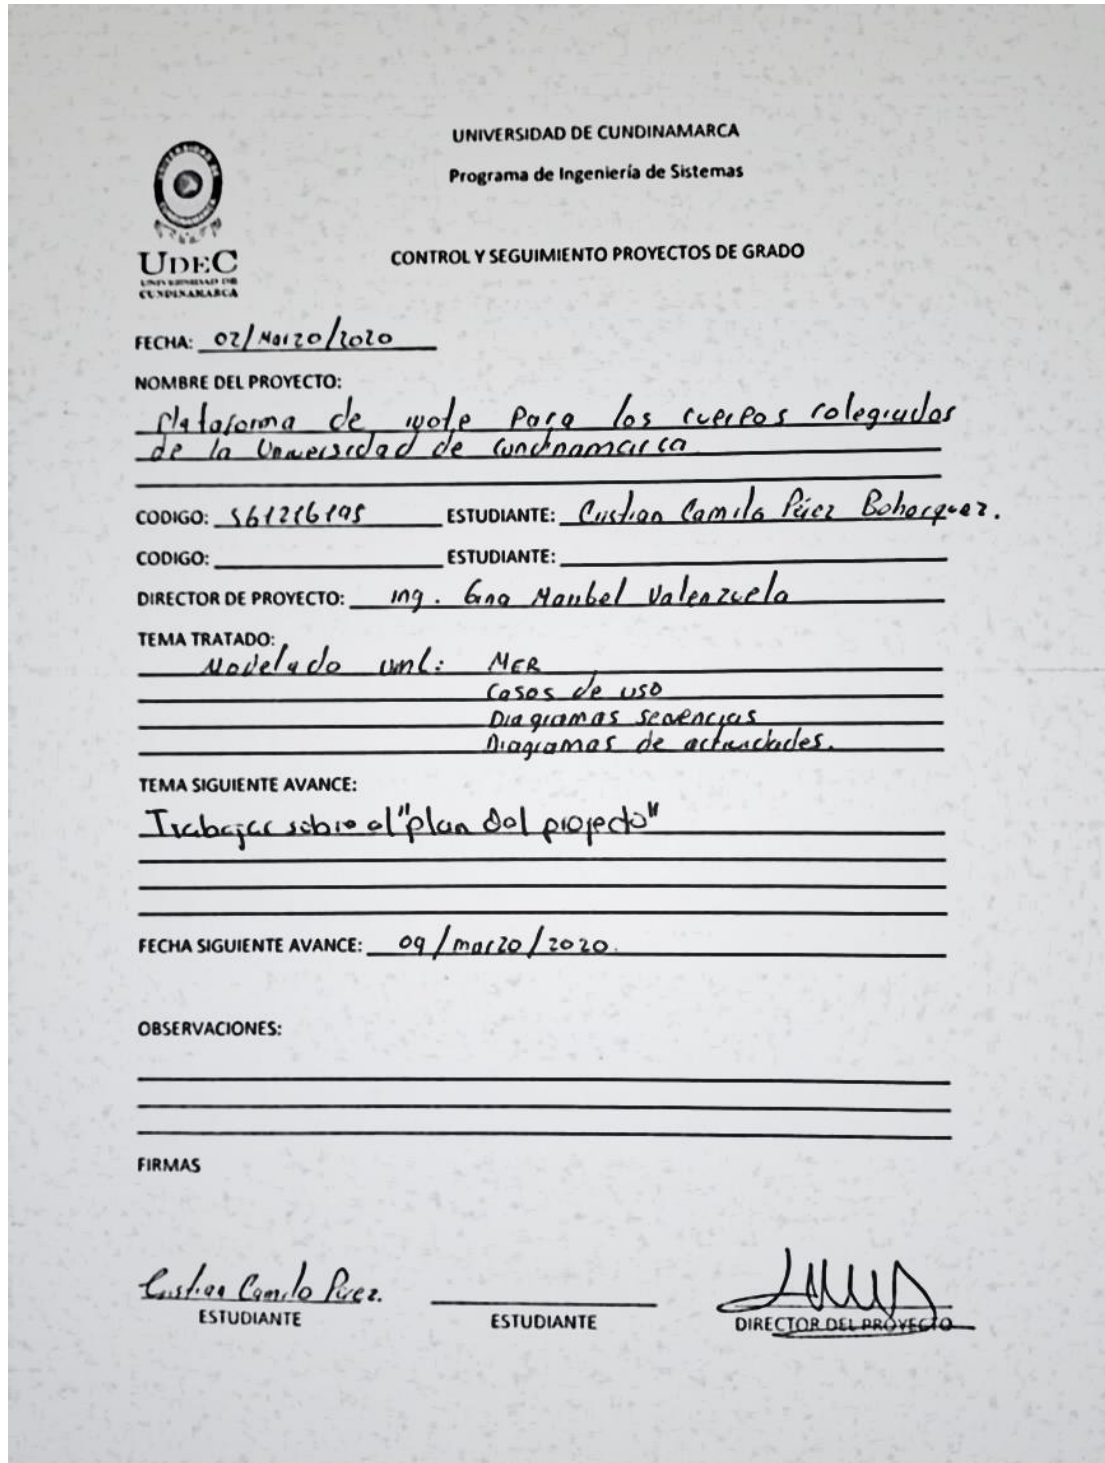 UNIVERSIDAD DE CUNDINAMARCA
Programa de Ingeniería de Sistemas
UDEC
UNIVERSIDAD DE
CUNDINAMARCA
CONTROL Y SEGUIMIENTO PROYECTOS DE GRADO
FECHA: 02/Marzo/2020
NOMBRE DEL PROYECTO:
Plataforma de para los cuerpos colegiados
de la Universidad de Cundinamarca
CODIGO: 561216195 ESTUDIANTE: Cristian Camilo Pérez Bohorquez.
CODIGO: ESTUDIANTE:
DIRECTOR DE PROYECTO: ing. Gina Maribel Valenzuela
TEMA TRATADO:
Modelado uml: MER
Casos de uso
Diagramas secuencias
Diagramas de actividades.
TEMA SIGUIENTE AVANCE:
Trabajar sobre el "plan del proyecto"
FECHA SIGUIENTE AVANCE: 09/marzo/2020.
OBSERVACIONES:
FIRMAS
Cristian Camilo Pérez.
ESTUDIANTE ESTUDIANTE DIRECTOR DEL PROYECTO